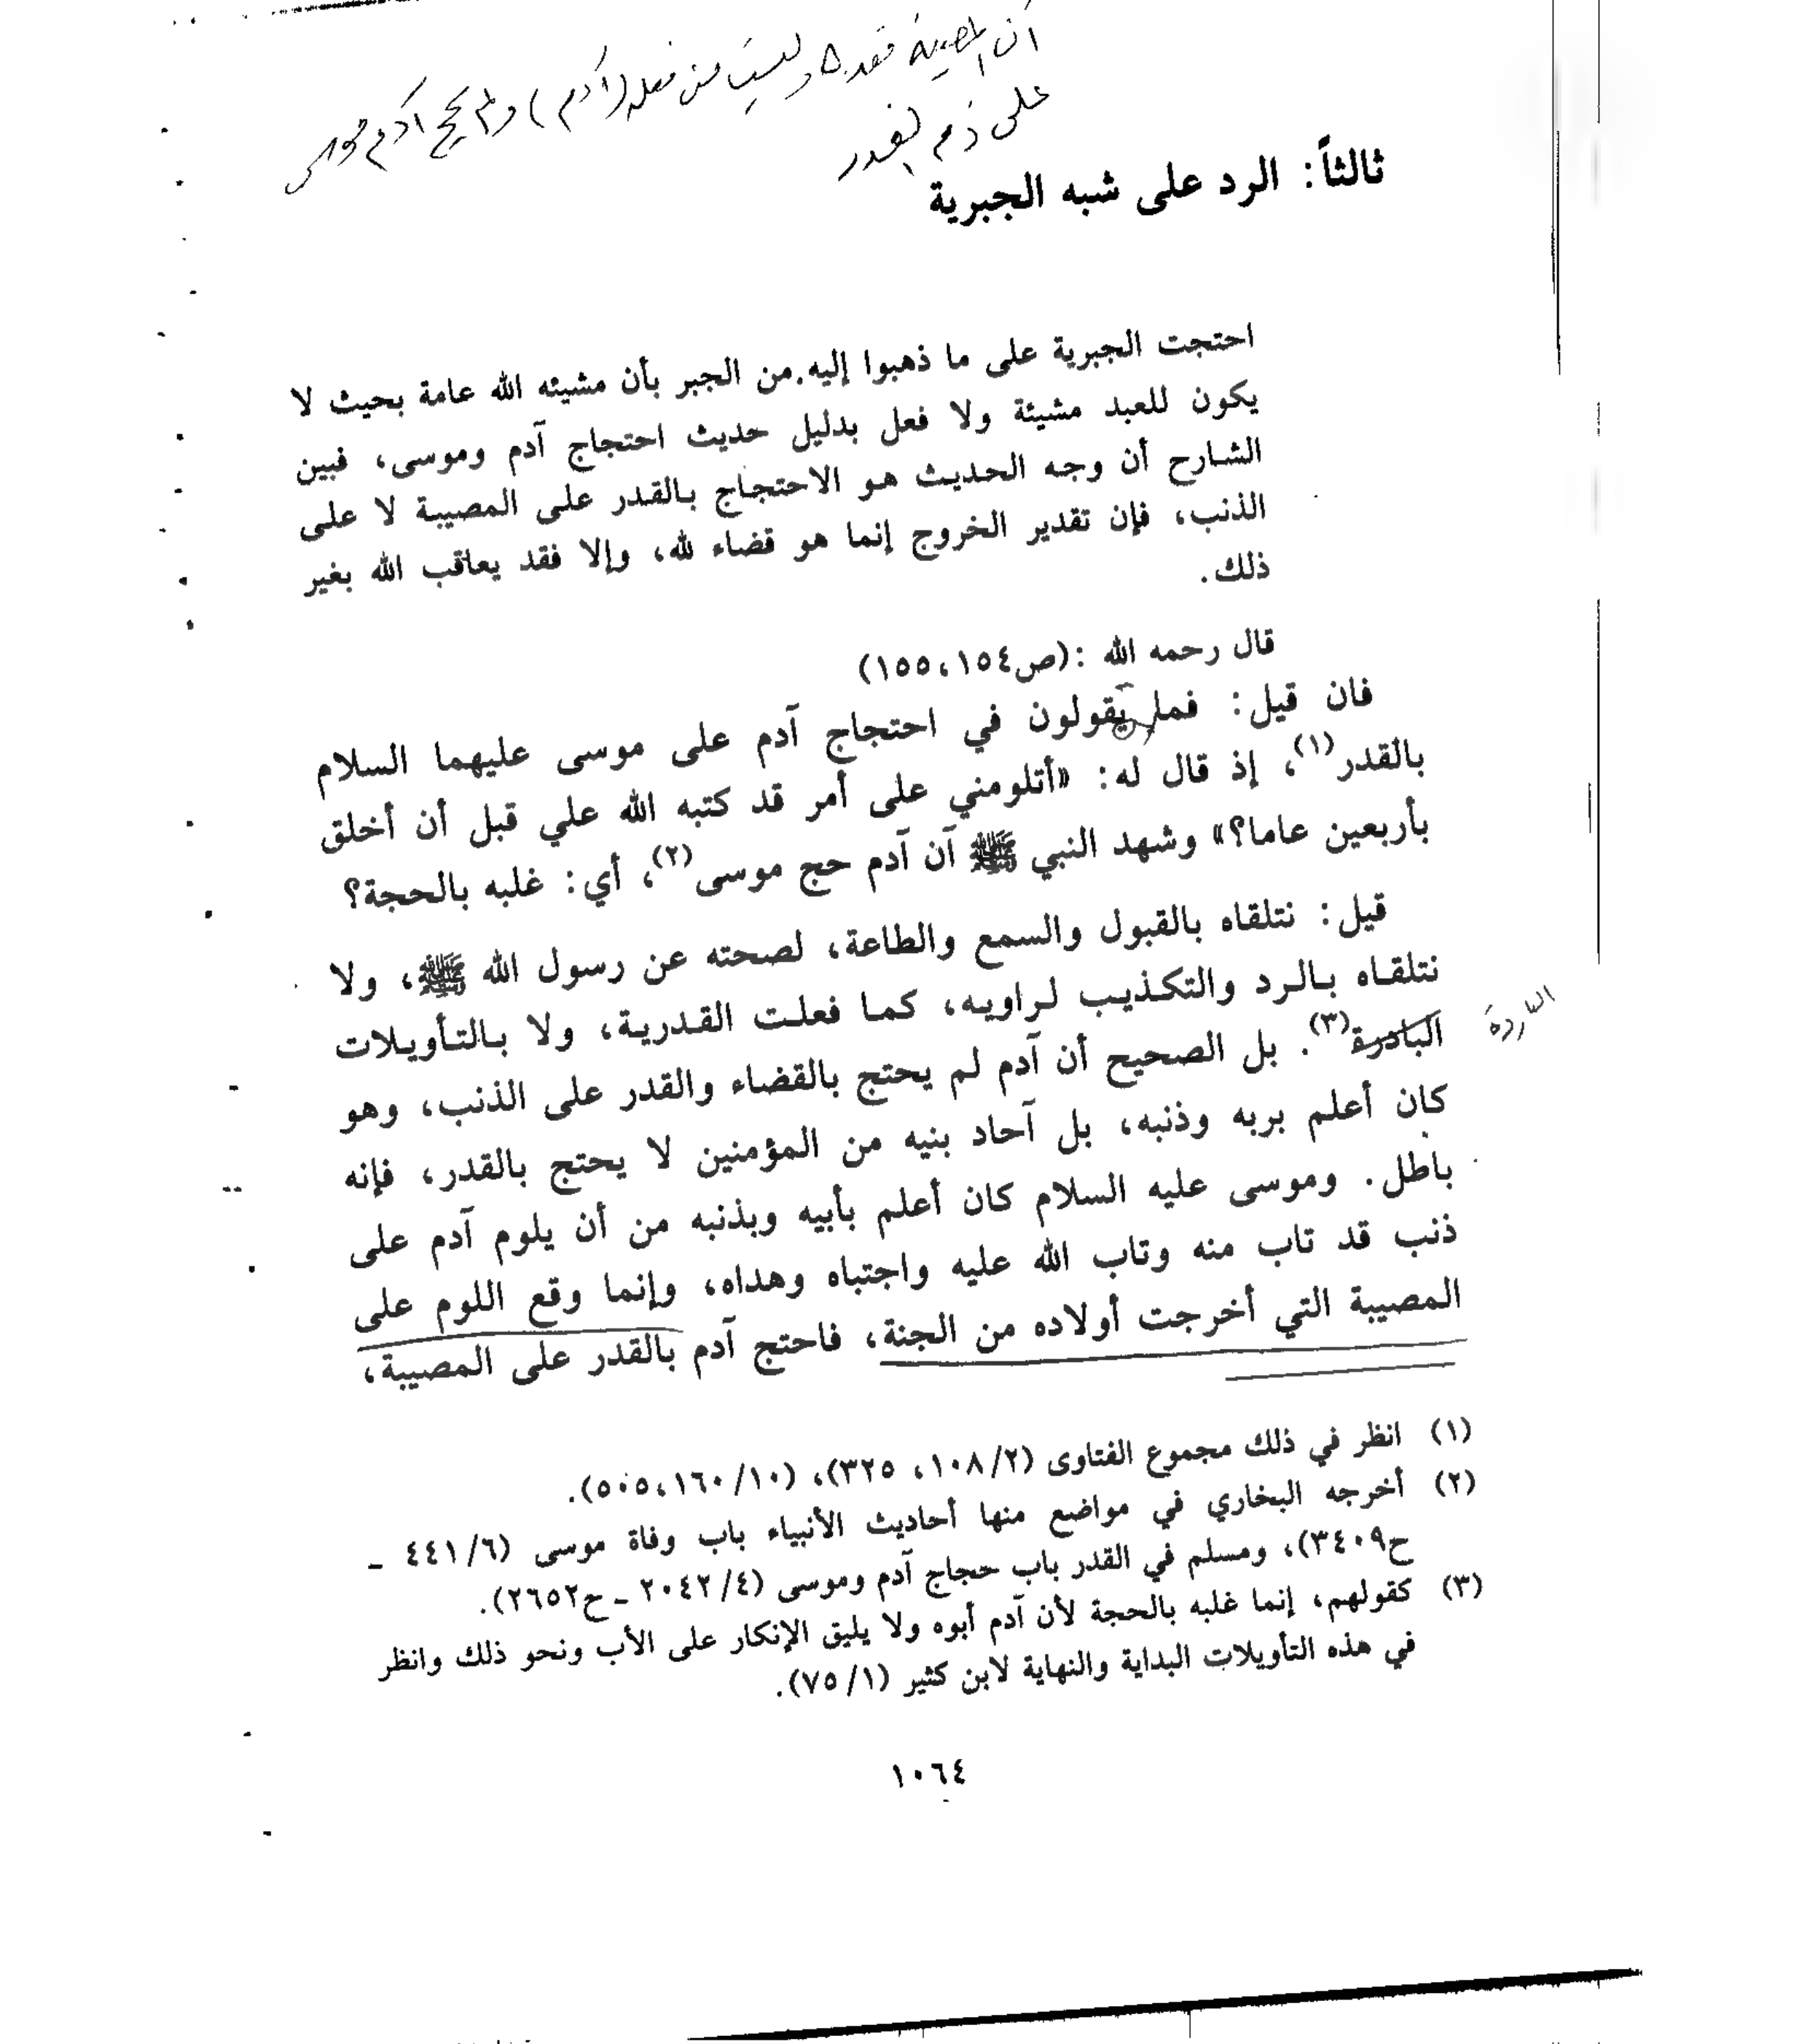 أن المصيبة مقدرة وليست من فعله (آدم) ولم يحج آدم موسى
على ذم القدر
ثالثاً: الرد على شبه الجبرية
احتجت الجبرية على ما ذهبوا إليه من الجبر بأن مشيئه الله عامة بحيث لا
يكون للعبد مشيئة ولا فعل بدليل حديث احتجاج آدم وموسى، فبين
الشارح أن وجه الحديث هو الاحتجاج بالقدر على المصيبة لا على
الذنب، فإن تقدير الخروج إنما هو قضاء لله، وإلا فقد يعاقب الله بغير
ذلك.
قال رحمه الله :(ص١٥٤،١٥٥)
فان قيل: فما يقولون في احتجاج آدم على موسى عليهما السلام
بالقدر(١)، إذ قال له: «أتلومني على أمر قد كتبه الله علي قبل أن أخلق
بأربعين عاما؟» وشهد النبي ﷺ آن آدم حج موسى(٢)، أي: غلبه بالحجة؟
قيل: نتلقاه بالقبول والسمع والطاعة، لصحته عن رسول الله ﷺ، ولا
نتلقاه بالرد والتكذيب لراويه، كما فعلت القدرية، ولا بالتأويلات
البادرة(٣). بل الصحيح أن آدم لم يحتج بالقضاء والقدر على الذنب، وهو
الباردة
كان أعلم بربه وذنبه، بل آحاد بنيه من المؤمنين لا يحتج بالقدر، فإنه
باطل. وموسى عليه السلام كان أعلم بأبيه وبذنبه من أن يلوم آدم على
ذنب قد تاب منه وتاب الله عليه واجتباه وهداه، وإنما وقع اللوم على
المصيبة التي أخرجت أولاده من الجنة، فاحتج آدم بالقدر على المصيبة،
(١) انظر في ذلك مجموع الفتاوى (١٠٨/٢، ٣٢٥)، (١٦٠/١٠،٥٠٥).
(٢) أخرجه البخاري في مواضع منها أحاديث الأنبياء باب وفاة موسى (٤٤١/٦ ـ
ح٣٤٠٩)، ومسلم في القدر باب حجاج آدم وموسى (٢٠٤٢/٤ ـ ح٢٦٥٢).
(٣) كقولهم، إنما غلبه بالحجة لأن آدم أبوه ولا يليق الإنكار على الأب ونحو ذلك وانظر
في هذه التأويلات البداية والنهاية لابن كثير (٧٥/١).
١٠٦٤